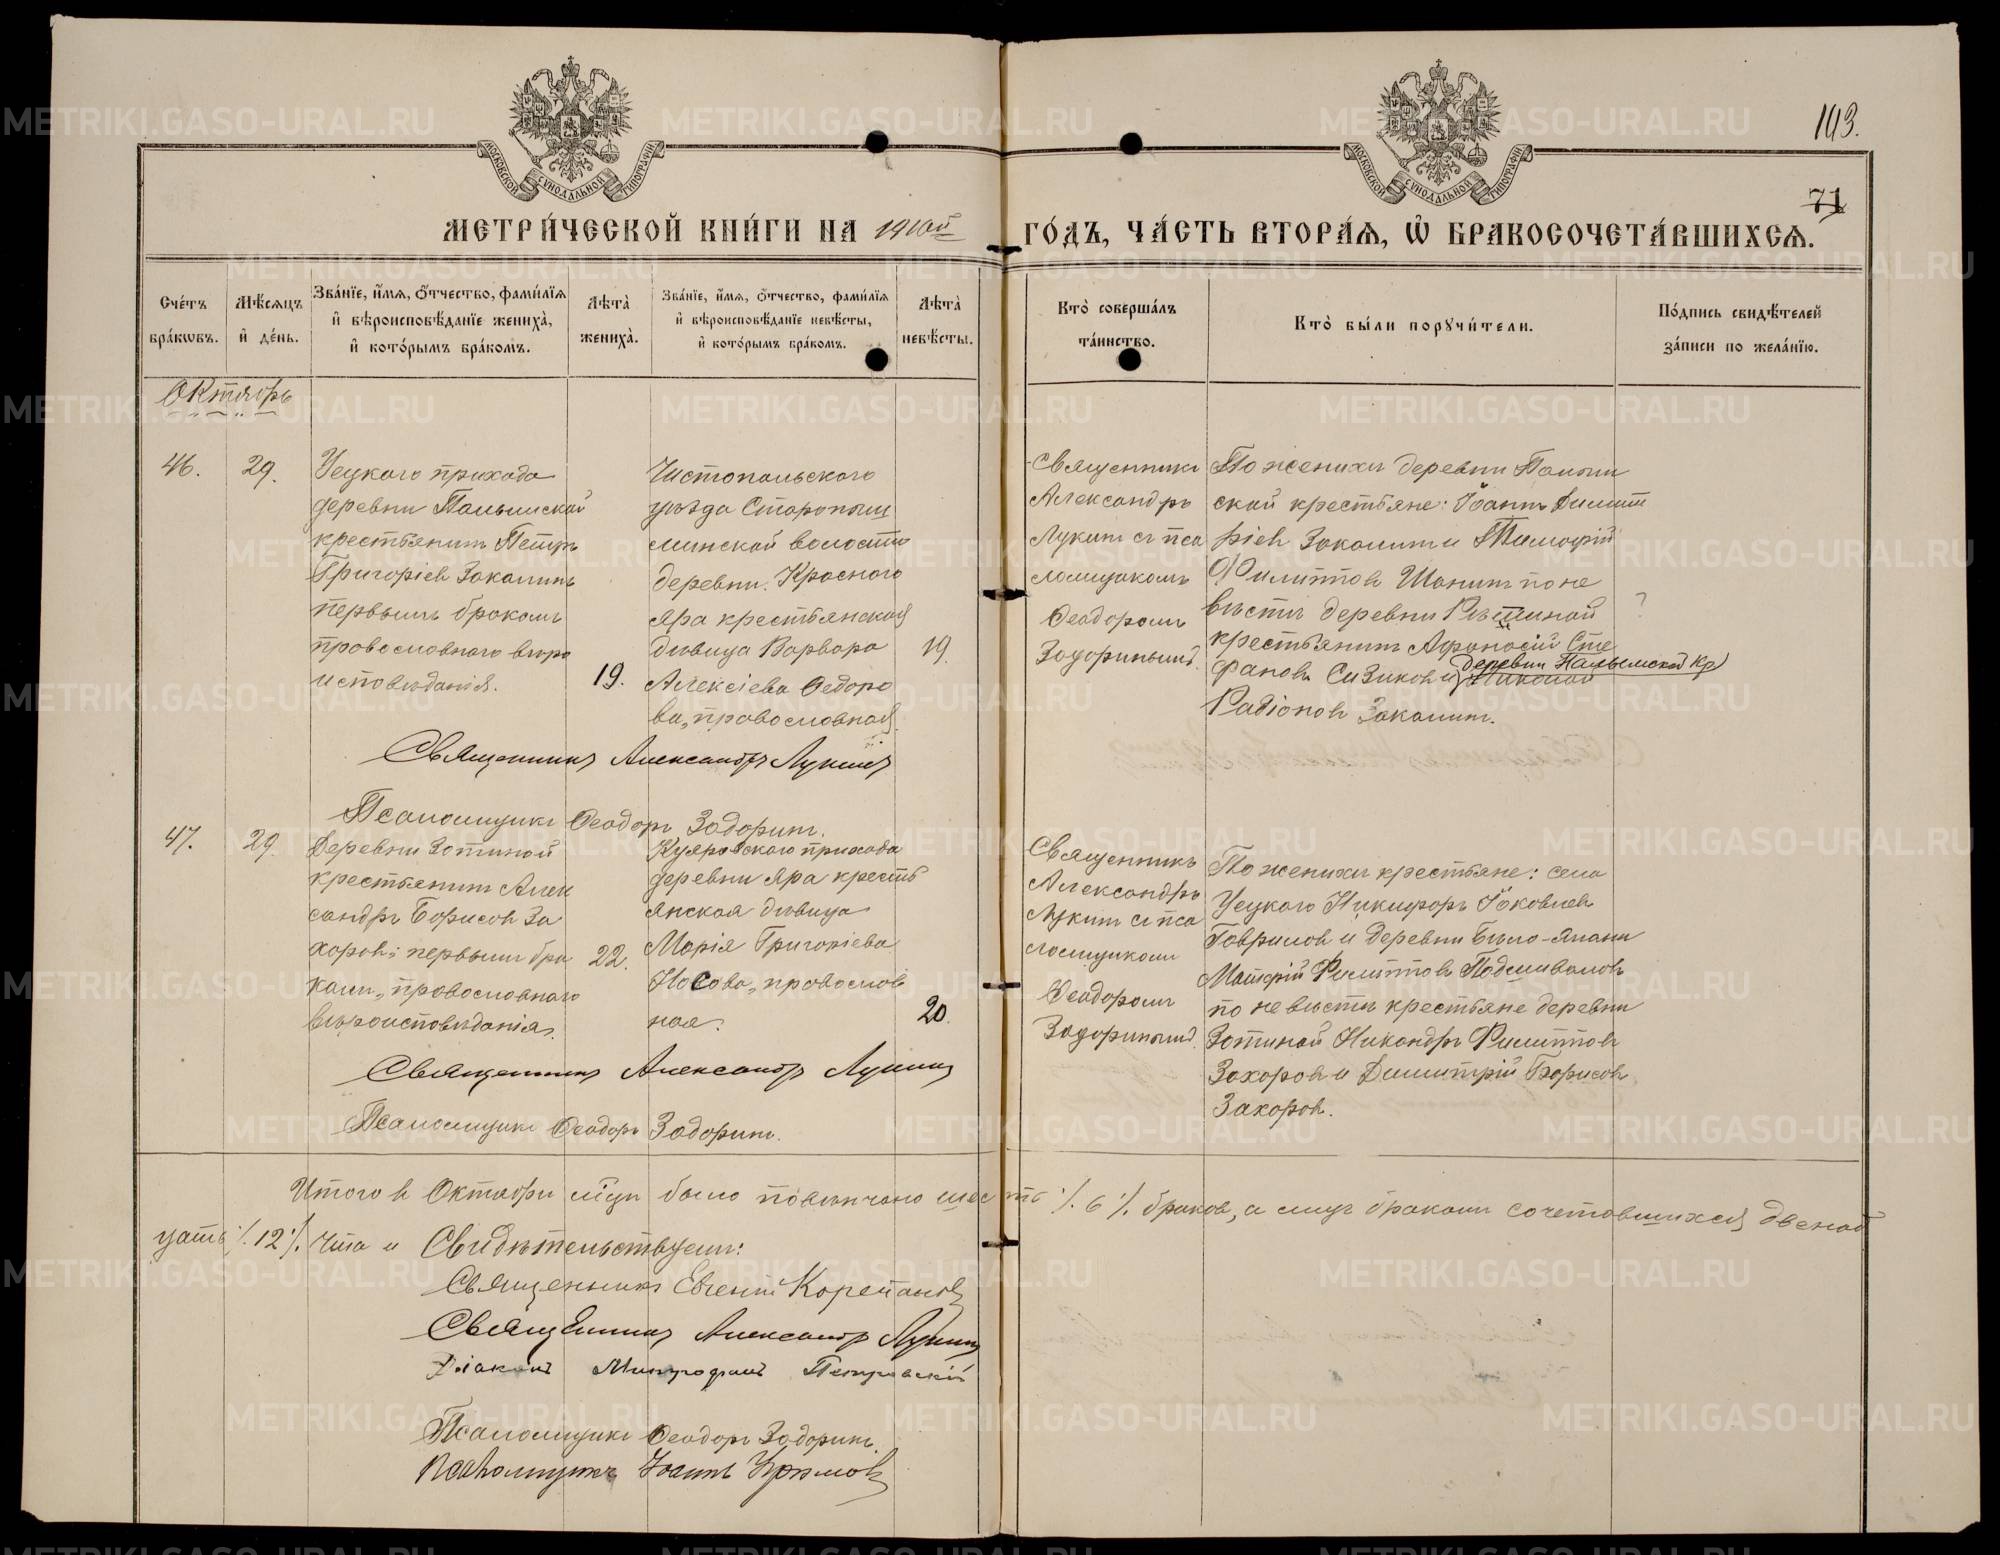 143.
71
МОСКОВСКОЙ СУНОДАЛЬНОЙ ТИПОГРАФІИ
МОСКОВСКОЙ СУНОДАЛЬНОЙ ТИПОГРАФІИ
МЕТРИ́ЧЕСКОЙ КНИ́ГИ НА 1910ый ГО́ДЪ, ЧА́СТЬ ВТОРА́Ѧ, Ѡ҆ БРАКОСОЧЕТА́ВШИХСѦ.
Сче́тъ бра́кѡвъ.
Мѣ́сѧцъ и҆ де́нь.
Зва́нїе, и҆́мѧ, ѻ҆́тчество, фами́лїѧ и҆ вѣроисповѣ́данїе жениха̀, и҆ кото́рымъ бра́комъ.
Лѣта̀ жениха̀.
Зва́нїе, и҆́мѧ, ѻ҆́тчество, фами́лїѧ и҆ вѣроисповѣ́данїе невѣ́сты, и҆ кото́рымъ бра́комъ.
Лѣта̀ невѣ́сты.
Кто̀ соверша́лъ та́инство.
Кто̀ бы́ли порꙋчи́тели.
По́дпись свидѣ́телей за́писи по жела́нїю.
Октябрь
46.
29.
Уецкаго прихода
деревни Палымской
крестьянинъ Петръ
Григоріевъ Закалинъ
первымъ бракомъ
православнаго вѣро
исповѣданія.
19.
Чистопольскаго
уѣзда
волости
деревни Краснаго
Яра крестьянская
дѣвица Варвара
Алексіева Ѳедоро
ва, православная.
19.
Священникъ
Александръ
Лукинъ съ пса
ломщикомъ
Ѳеодоромъ
Задоринымъ.
По женихѣ деревни Палым
ской крестьяне: Іоаннъ Димит
ріевъ Закалинъ и Тимофій
Филипповъ Шанинъ по не
вѣстѣ деревни
крестьянинъ Афонасій Сте
фановъ Сизиковъ и деревни Палымской кр.
Николай
Радіоновъ Закалинъ.
Священникъ Александръ Лукинъ
Псаломщикъ Ѳеодоръ Задоринъ.
47.
29.
Деревни Зотиной
крестьянинъ Алек
сандръ Борисовъ За
харовъ, первымъ бра
комъ, православнаго
вѣроисповѣданія.
22.
Куяровскаго прихода
деревни Яра кресть
янская дѣвица
Марія Григоріева
Носова, православ
ная.
20.
Священникъ
Александръ
Лукинъ съ пса
ломщикомъ
Ѳеодоромъ
Задоринымъ.
По женихѣ крестьяне: села
Уецкаго Никифоръ Іаковлевъ
Гавриловъ и деревни Бѣло-
Филипповъ Подшиваловъ
по невѣстѣ крестьяне деревни
Зотиной Никандръ Филипповъ
Захаровъ и Димитрій Борисовъ
Захаровъ.
Священникъ Александръ Лукинъ
Псаломщикъ Ѳеодоръ Задоринъ.
Итого въ Октябрѣ м-цѣ было повѣнчано шесть ·/. 6 ·/. браковъ, а лицъ бракомъ сочетавшихся двенад
цать ·/. 12 ·/. Что и Свидѣтельствуемъ:
Священникъ Евгеній Корепановъ
Священникъ Александръ Лукинъ
Діаконъ Митрофанъ Петровскій
Псаломщикъ Ѳеодоръ Задоринъ.
Псаломщикъ Іоаннъ
METRIKI.GASO-URAL.RU